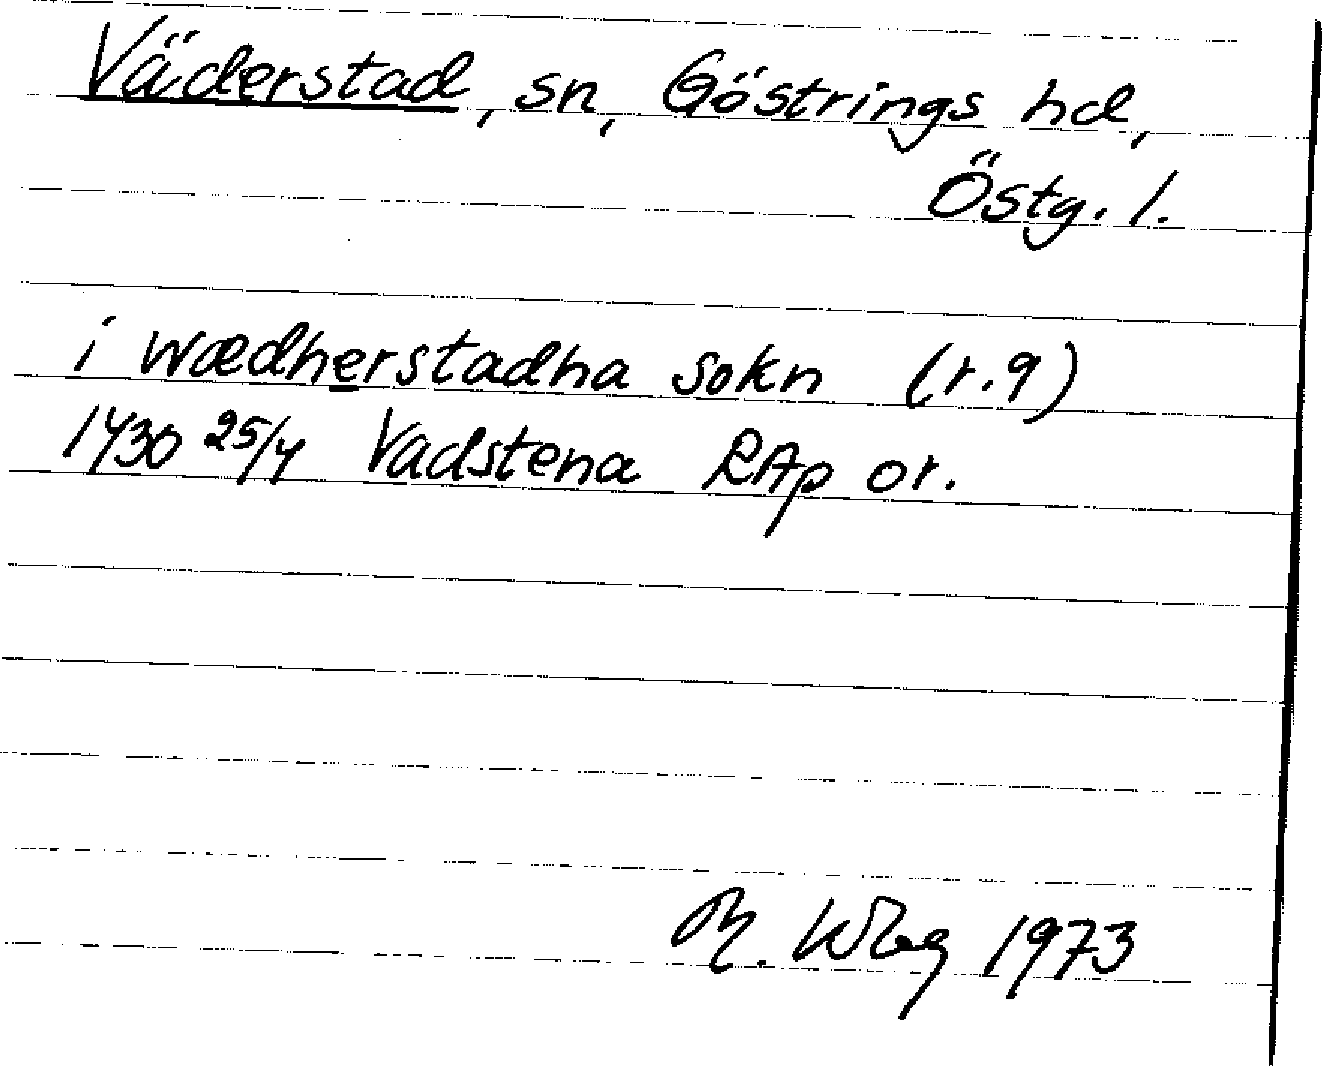 Väderstad, sn, Göstrings hd,
Östg. l.
i wædherstadha sokn (r.9)
1430 25/4 Vadstena RAp or.
1973